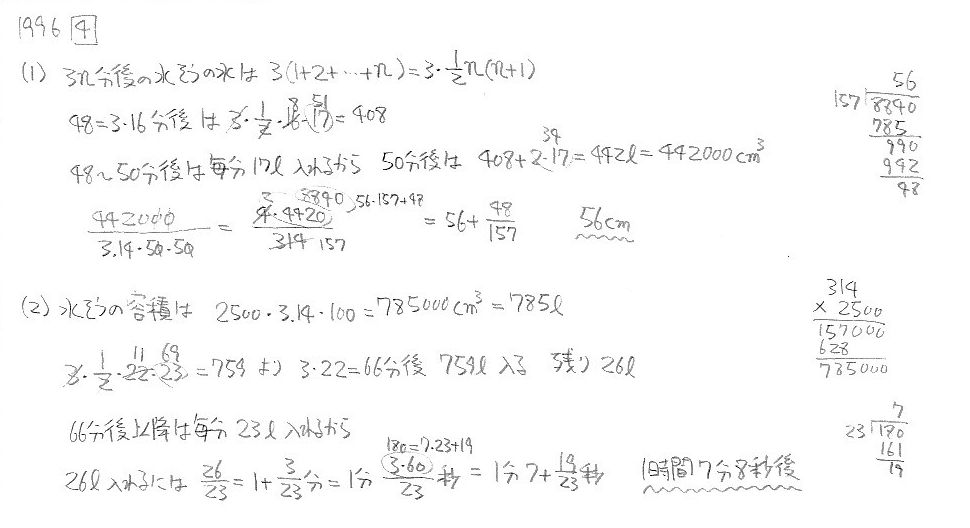 1996 4
(1) 3n分後の水そうの水は 3(1+2+…+n)=3·1/2 n(n+1)
48=3·16分後は 3·1/2·16·17=408
8 51
48~50分後は毎分17l入れるから 50分後は 408+2·17=442l=442000cm³
34
442000/3.14·50·50 = 4·4420/314 = 56+48/157 56cm
2 8840 56·157+48
157
56
157)8840
785
990
942
48
(2) 水そうの容積は 2500·3.14·100=785000cm³=785l
3·1/2·22·23=759より 3·22=66分後 759l入る 残り26l
11 69
66分後以降は毎分23l入れるから
180=7·23+19
26l入れるには 26/23=1+3/23分=1分 3·60/23秒=1分7+19/23秒 1時間7分8秒後
314
× 2500
157000
628
785000
7
23)180
161
19